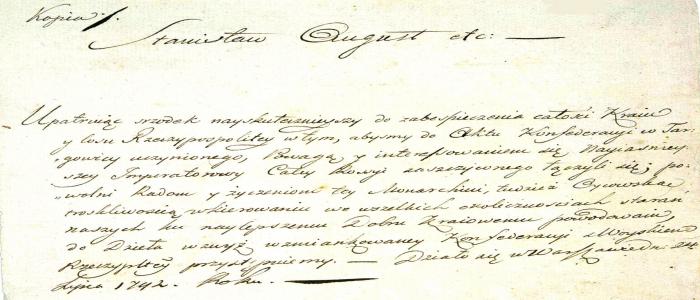 Kopia
Stanisław August etc: —
Upatruiąc srzodek nayskutecznieyszy do zabespieczenia całości Kraiu
y losu Rzeczypospolitey w tym, abysmy do Aktu Konfederacyi w Tar
gowicy uczynionego, Powagą y interesowaniem się Nayiasniey
szey Imperatorowy Całey Rossyi zaszczyconego łączyli się; po
wolni Radom y życzeniom tey Monarchini, tudzież Oycowską
troskliwością w kierowaniu we wszelkich okolicznościach staran
naszych ku naylepszemu Dobru Kraiowemu powodowani,
do Dzieła wzwyż wzmiankowaney Konfederacyi Woyskiem
Rzeczyplitey przystępuiemy. — Działo się w Warszawie dn: 24
Lipca 1792. Roku. —